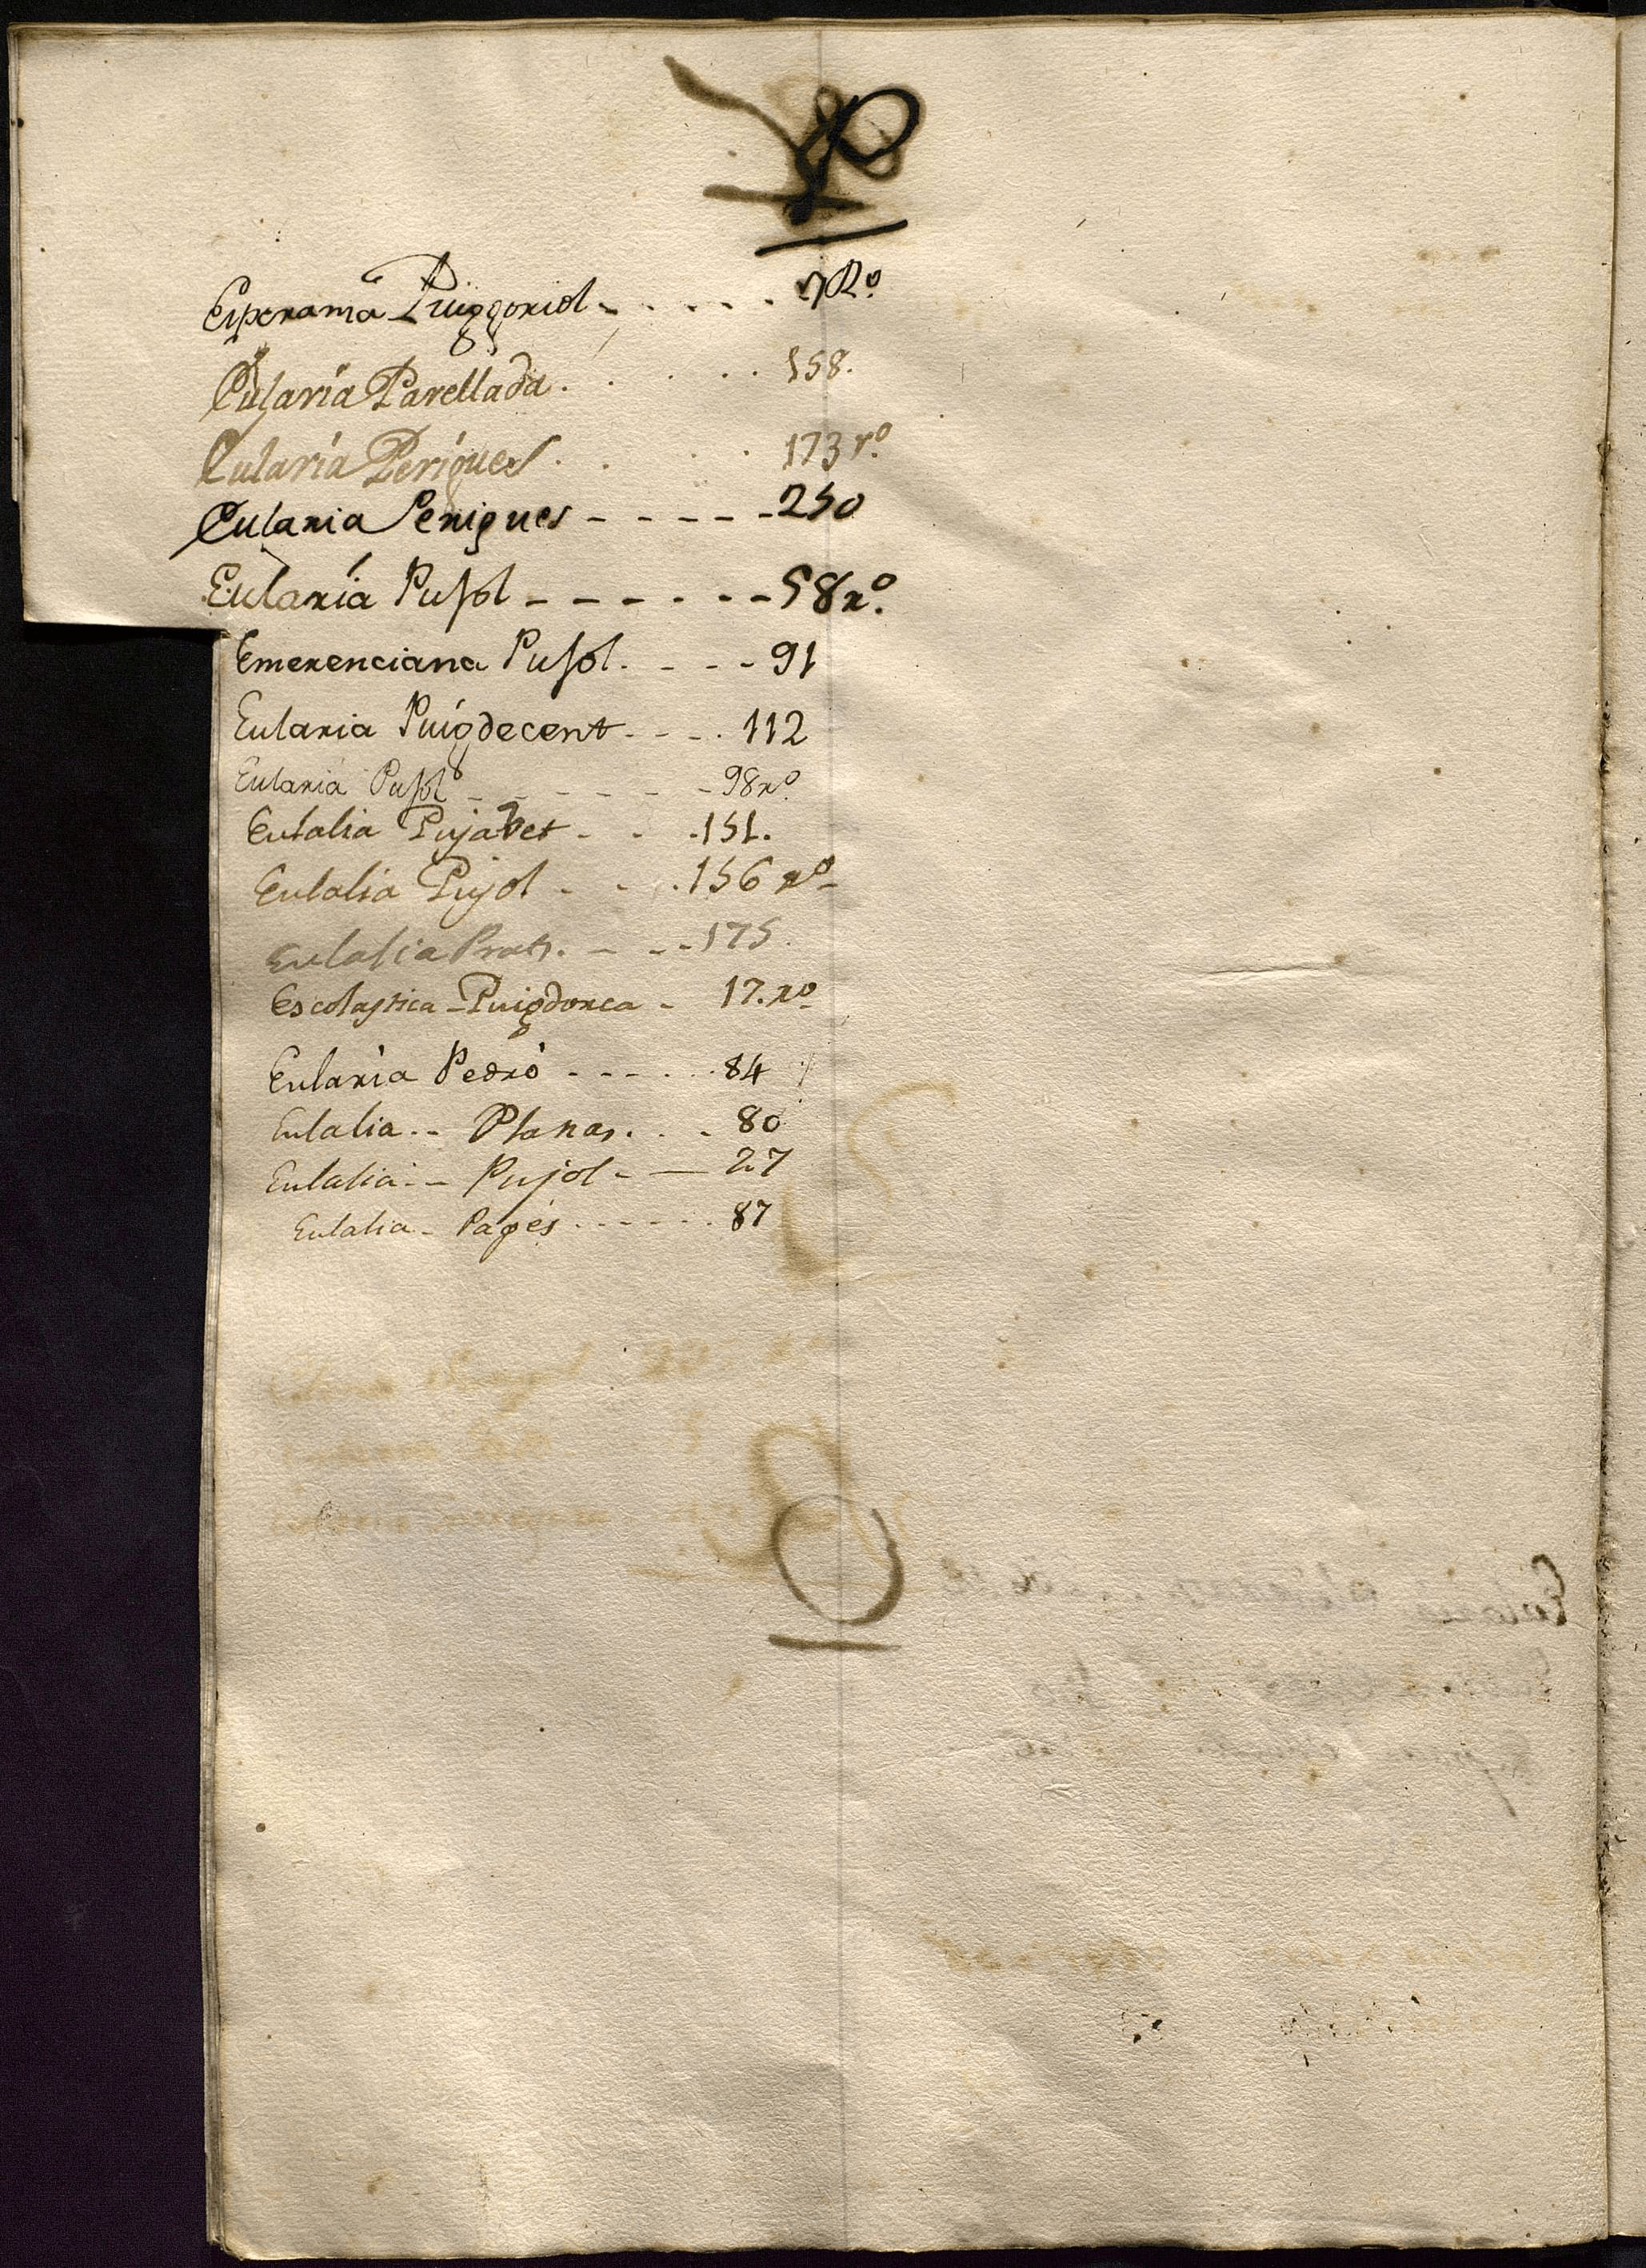 P
Esperansa Puiggoriol - . . . . 7 Rº.
Eularia Parellada . . . . . 158.
Eularia Perigues . . . 173 rº.
Eularia Perigues - - - - - 250
Eularia Pujol - - - - - - - 58 rº.
Emerenciana Pujol. - - - 91
Eularia Puigdecent - - - . 112
Eularia Pujol - - - - - - 98 rº.
Eulalia Pujadet - - . 151.
Eulalia Pujol - - . 156 rº
Eulalia Prats. - - - 175.
Escolastica - Puigdorca - 17. rº
Eularia Pedró - - - . . . 84
Eulalia . - Planas . . - 80
Eulalia - - Pujol - — 27
Eulalia - Pagés - - - - - . 87